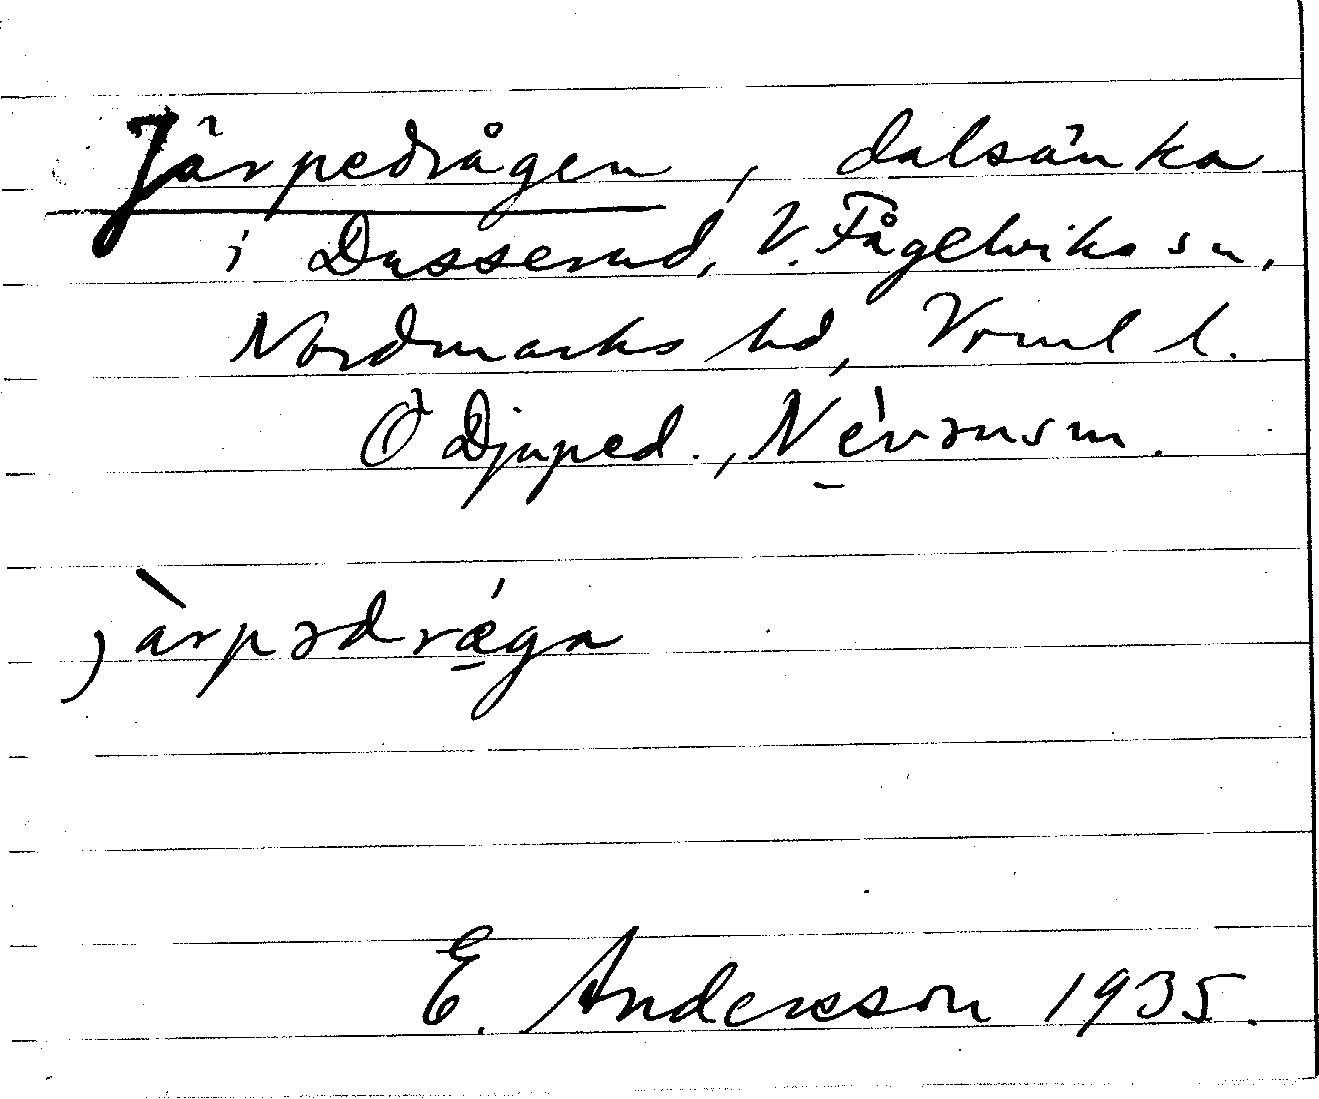 Järpedrågen, dalsänka
i Dusserud, V. Fågelviks sn,
Nordmarks hd, Vrml l.
Ö Djuped., N évənsm.
j àrpədrǽga
E. Andersson 1935.